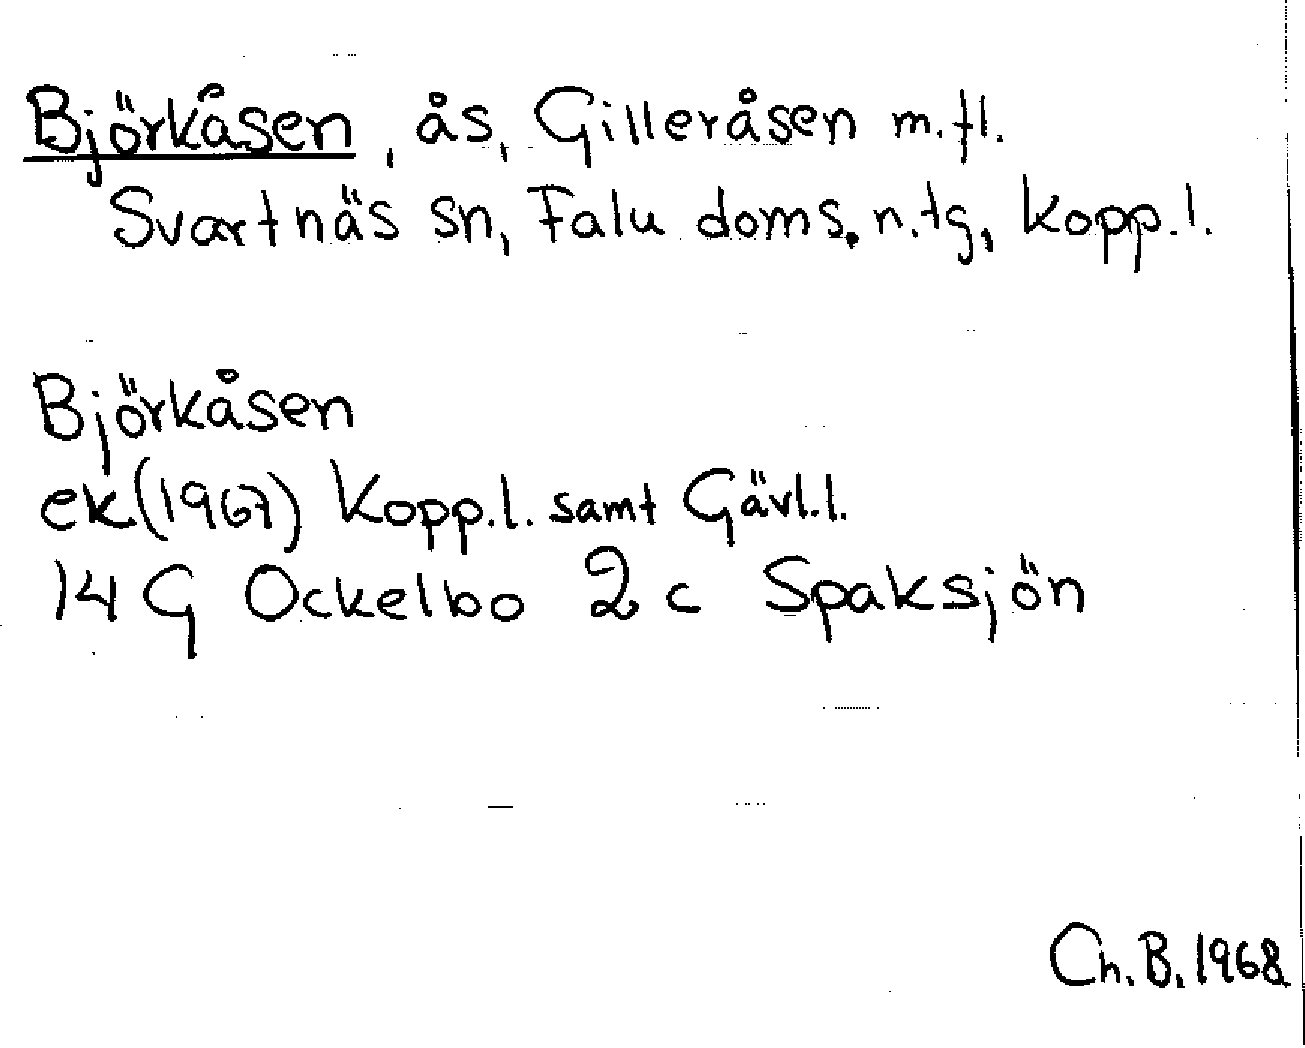 Björkåsen, ås, Gilleråsen m.fl.
Svartnäs sn, Falu doms. n.tg, Kopp.l.
Björkåsen
ek(1967) Kopp.l. samt Gävl.l.
14 G Ockelbo 2 c Spaksjön
Ch.B.1968